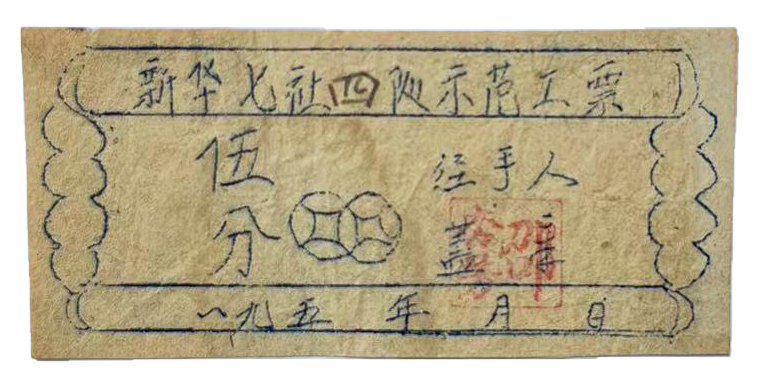 新华七社四队示范工票
伍分
经手人
盖章
一九五 年 月 日